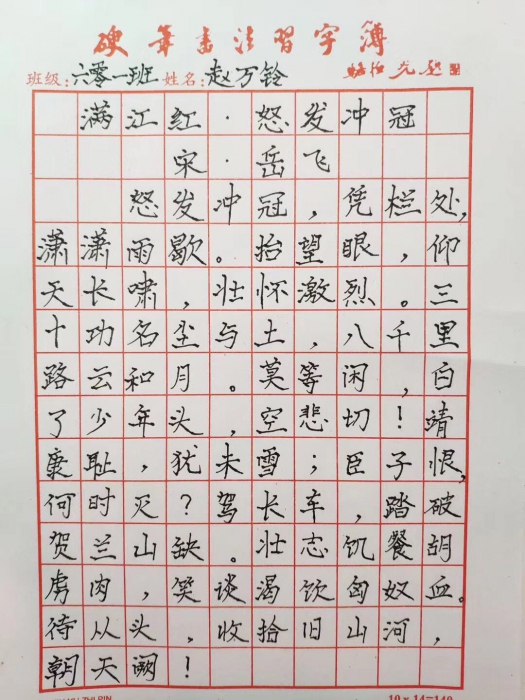 硬笔书法习字簿
班级：六零一班 姓名：赵万铃
满江红·怒发冲冠
宋·岳飞
怒发冲冠，凭栏处，
潇潇雨歇。抬望眼，仰
天长啸，壮怀激烈。三
十功名尘与土，八千里
路云和月。莫等闲，白
了少年头，空悲切！靖
康耻，犹未雪；臣子恨，
何时灭？驾长车，踏破
贺兰山缺。壮志饥餐胡
虏肉，笑谈渴饮匈奴血。
待从头，收拾旧山河，
朝天阙！
10×14=140